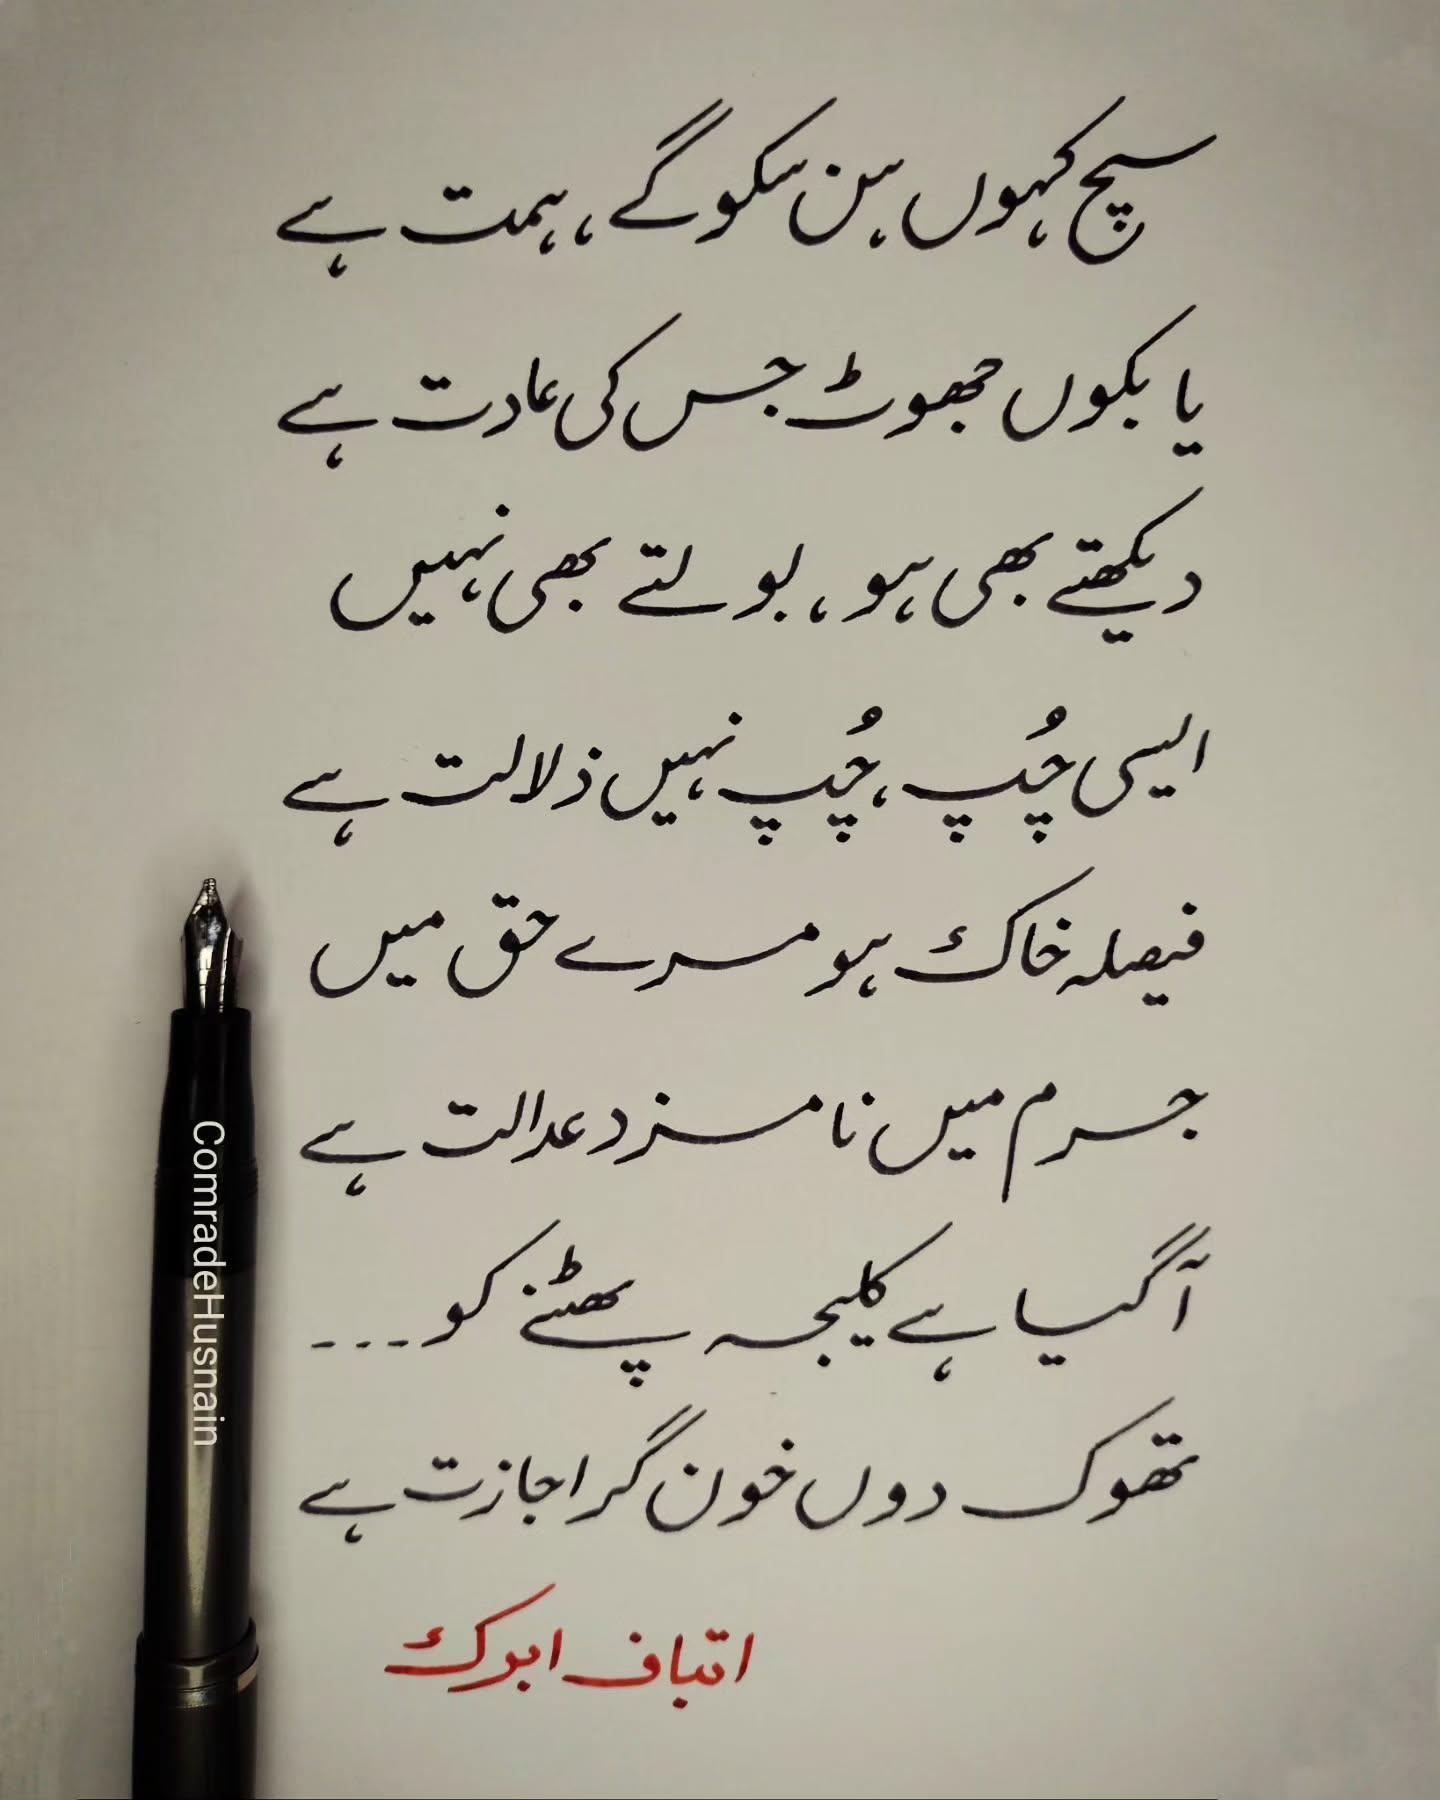 سچ کہوں سن سکو گے، ہمت ہے
یا بکوں جھوٹ جس کی عادت ہے
دیکھتے بھی ہو، بولتے بھی نہیں
ایسی چُپ، چُپ نہیں ذلالت ہے
فیصلہ خاک ہو مرے حق میں
جرم میں نامزد عدالت ہے
آ گیا ہے کلیجہ پھٹنے کو ---
تھوک دوں خون گر اجازت ہے
اتباف ابرک
ComradeHusnain